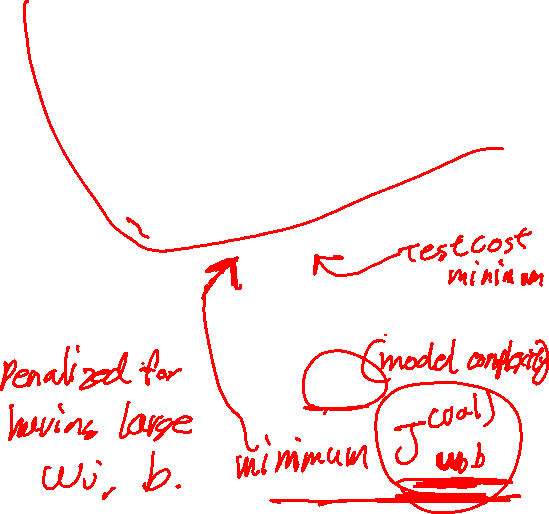 Test cost
minimum
(model complexity)
Penalized for
having large
wj, b.
minimum J(val)
w,b